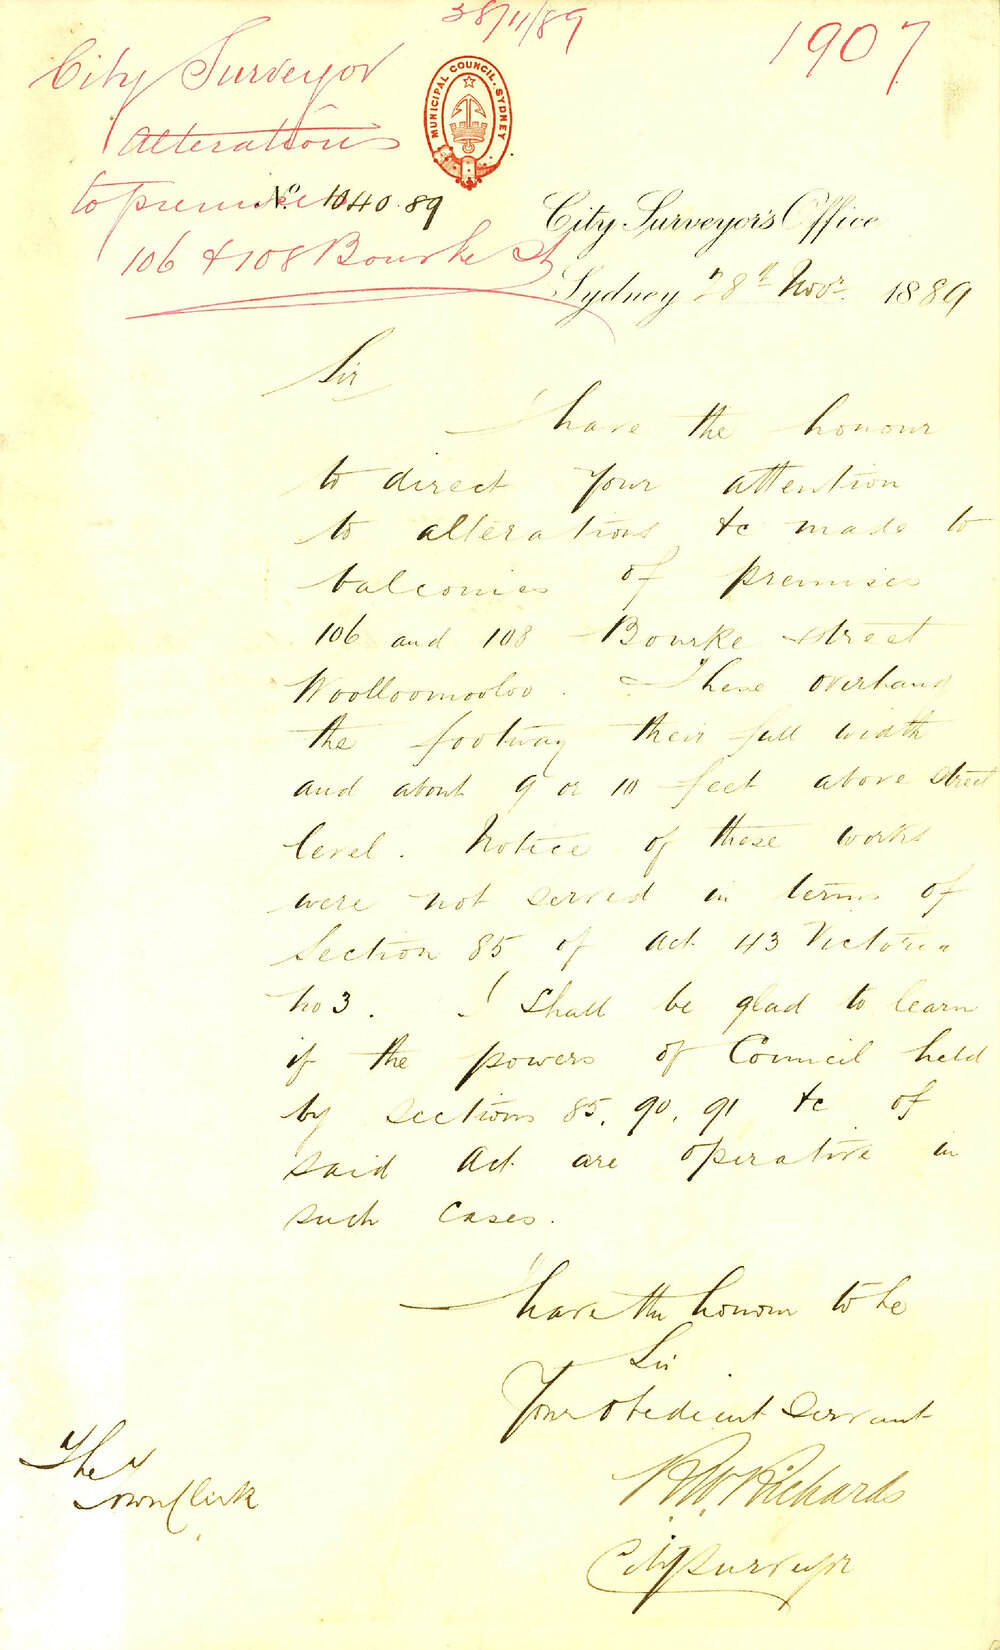 28/11/89
1907
City Surveyor
Alterations
to premises
106 & 108 Bourke St
MUNICIPAL COUNCIL. SYDNEY
No. 1040.89
City Surveyor's Office
Sydney 28th Novr. 1889
Sir
I have the honour
to direct your attention
to alterations &c made to
balconies of premises
106 and 108 Bourke street
Woolloomooloo. These overhang
the footway their full width
and about 9 or 10 feet above street
level. Notice of these works
were not served in terms of
Section 85 of Act 43 Victoria
No 3. I shall be glad to learn
if the powers of Council held
by sections 85, 90, 91 &c of
said Act are operative in
such cases.
I have the honour to be
Sir
Your obedient servant
R.W. Richards
City Surveyor
The
Town Clerk